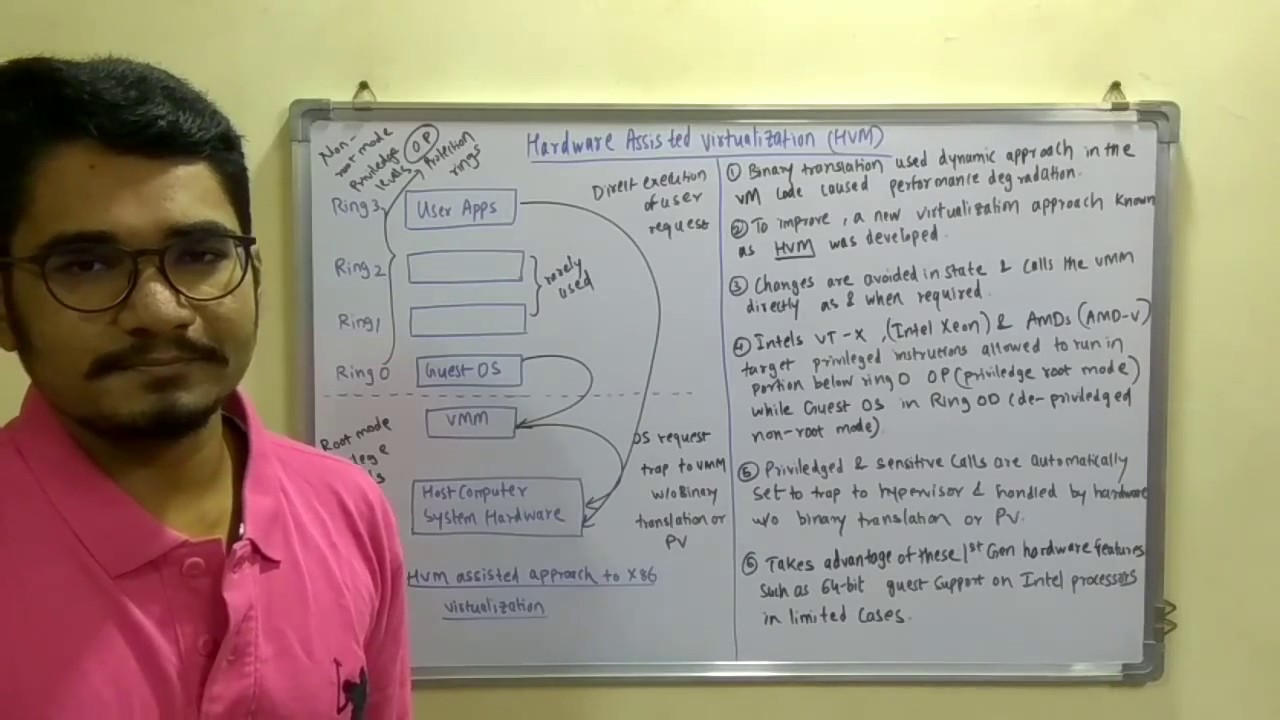 Hardware Assisted virtualization (HVM)
Non-
root mode
Priviledge
levels
OP
Protection
rings
Ring 3
User Apps
Direct execution
of user
request
Ring 2
rarely
used
Ring 1
Ring 0
Guest OS
VMM
Root mode
Host Computer
System Hardware
OS request
trap to VMM
w/o Binary
translation or
PV
HVM assisted approach to X86
virtualization
① Binary translation used dynamic approach in the
VM code caused performance degradation.
② To improve, a new virtualization approach known
as HVM was developed.
③ Changes are avoided in state & calls the VMM
directly as & when required.
④ Intels VT-X, (Intel Xeon) & AMDs (AMD-V)
target privileged instrutions allowed to run in
portion below ring 0 OP (priviledge root mode)
while Guest OS in Ring 0D (de-priviledged
non-root mode).
⑤ Priviledged & sensitive calls are automatically
set to trap to hypervisor & handled by hardware
w/o binary translation or PV.
⑥ Takes advantage of these 1st Gen hardware features
such as 64-bit guest support on Intel processors
in limited cases.